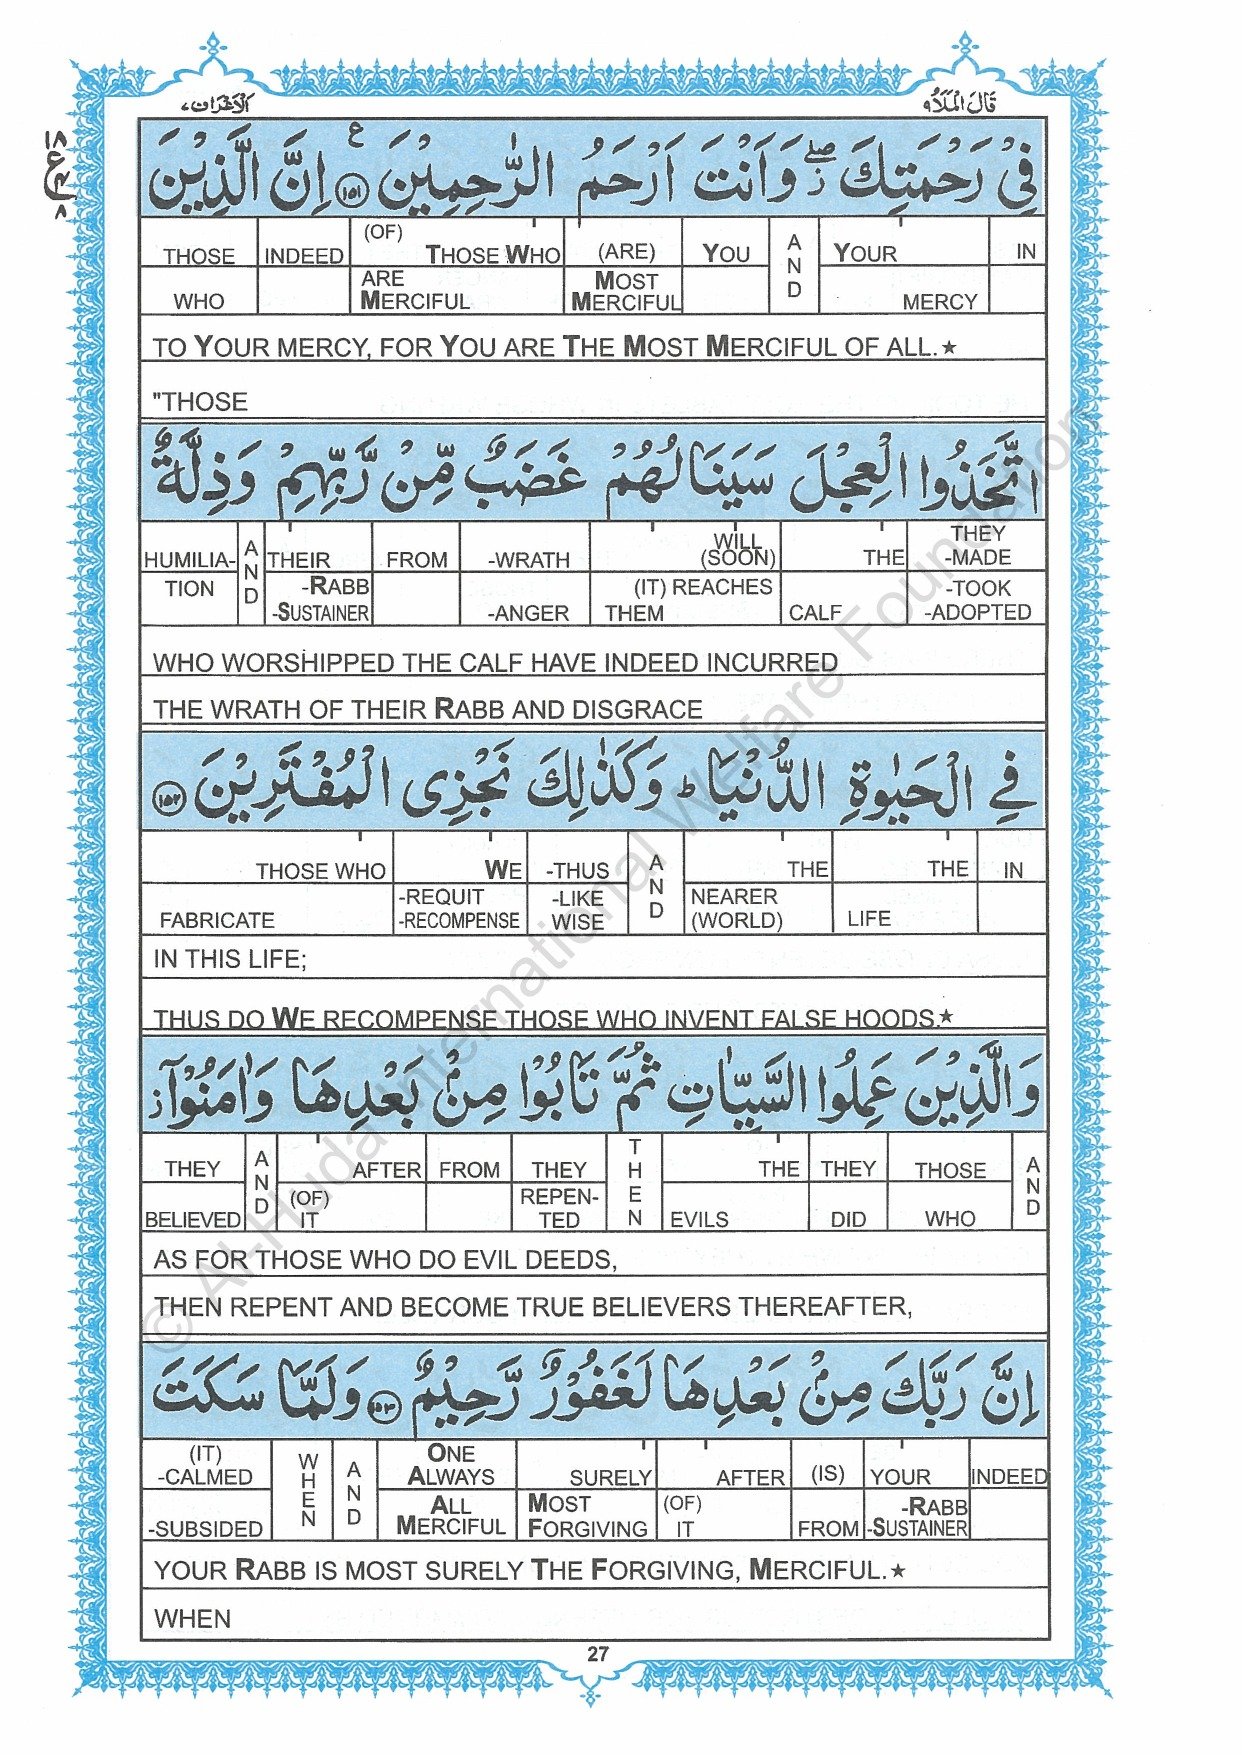 الاعراف ٧
قَالَ الْمَلَاُ ٩
١٨
ع
٨
فِیْ رَحْمَتِكَ ۖز وَاَنْتَ اَرْحَمُ الرّٰحِمِیْنَ ﴿١٥١﴾ ع اِنَّ الَّذِیْنَ
THOSE INDEED (OF) THOSE WHO (ARE) YOU AND YOUR IN
WHO ARE MERCIFUL MOST MERCIFUL MERCY
TO YOUR MERCY, FOR YOU ARE THE MOST MERCIFUL OF ALL.★
"THOSE
اتَّخَذُوا الْعِجْلَ سَیَنَالُهُمْ غَضَبٌ مِّنْ رَّبِّهِمْ وَذِلَّةٌ
HUMILIA- AND THEIR FROM -WRATH WILL (SOON) THE THEY -MADE
TION -RABB -SUSTAINER -ANGER (IT) REACHES THEM CALF -TOOK -ADOPTED
WHO WORSHIPPED THE CALF HAVE INDEED INCURRED
THE WRATH OF THEIR RABB AND DISGRACE
فِی الْحَیٰوةِ الدُّنْیَا ؕ وَكَذٰلِكَ نَجْزِی الْمُفْتَرِیْنَ ﴿١٥٢﴾
THOSE WHO WE -THUS AND THE THE IN
FABRICATE -REQUIT -RECOMPENSE -LIKE WISE NEARER (WORLD) LIFE
IN THIS LIFE;
THUS DO WE RECOMPENSE THOSE WHO INVENT FALSE HOODS.★
وَالَّذِیْنَ عَمِلُوا السَّیِّاٰتِ ثُمَّ تَابُوْا مِنْۢ بَعْدِهَا وَاٰمَنُوْۤا ز
THEY AND AFTER FROM THEY THEN THE THEY THOSE AND
BELIEVED (OF) IT REPEN- TED EVILS DID WHO
AS FOR THOSE WHO DO EVIL DEEDS,
THEN REPENT AND BECOME TRUE BELIEVERS THEREAFTER,
اِنَّ رَبَّكَ مِنْۢ بَعْدِهَا لَغَفُوْرٌ رَّحِیْمٌ ﴿١٥٣﴾ وَلَمَّا سَكَتَ
(IT) -CALMED WHEN AND ONE ALWAYS SURELY AFTER (IS) YOUR INDEED
-SUBSIDED ALL MERCIFUL MOST FORGIVING (OF) IT FROM -RABB -SUSTAINER
YOUR RABB IS MOST SURELY THE FORGIVING, MERCIFUL.★
WHEN
27
© Al-Huda International Welfare Foundation